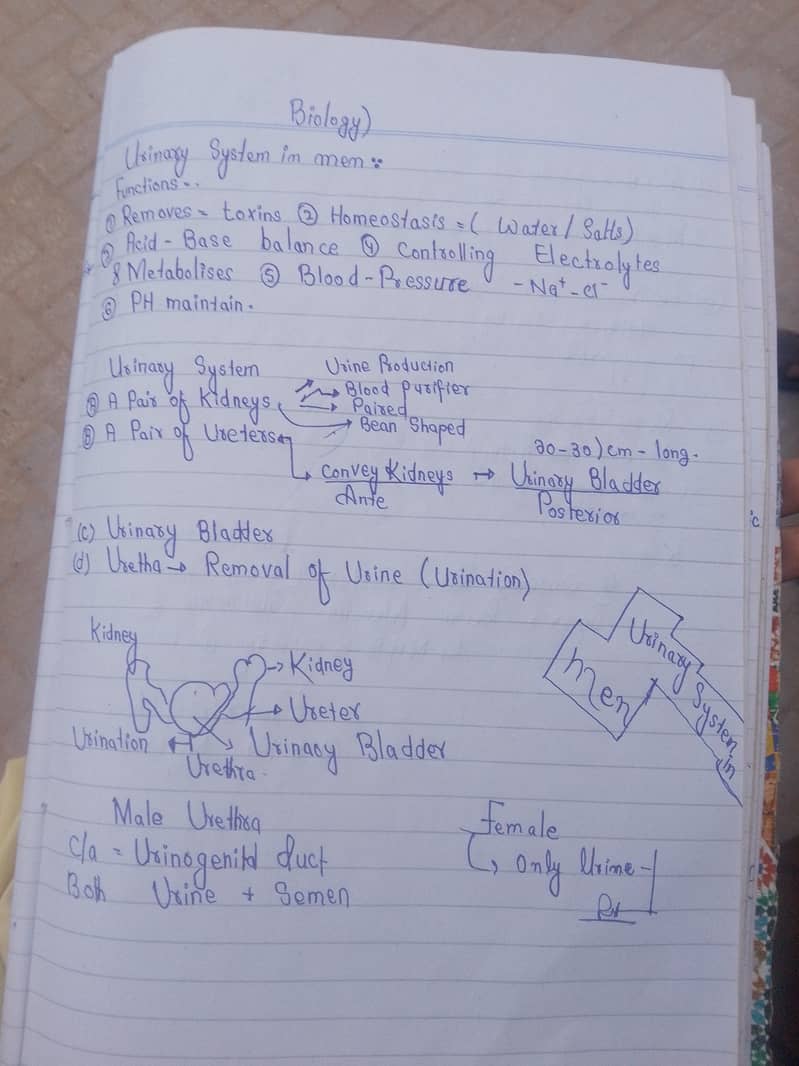 Biology)
Urinary System in men :
Functions :
① Removes = toxins ② Homeostasis = ( Water / Salts)
③ Acid - Base balance ④ Controlling Electrolytes
& Metabolises ⑤ Blood - Pressure - Na⁺ - Cl⁻
⑥ PH maintain.
Urinary System Urine Production
(A) A Pair of Kidneys → Blood purifier
→ Paired
→ Bean Shaped
(B) A Pair of Ureters
20-30) cm - long.
convey Kidneys → Urinary Bladder
Ante Posterior
(c) Urinary Bladder
(d) Uretha → Removal of Urine (Urination)
Kidney
→ Kidney
→ Ureter
Urination Urinary Bladder
Urethra
Urinary System in
men
Male Urethra
c/a = Urinogenital duct
Both Urine + Semen
Female
↳ only Urine